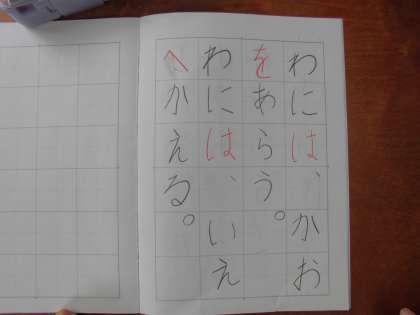 わには、かお
をあらう。
わには、いえ
へかえる。